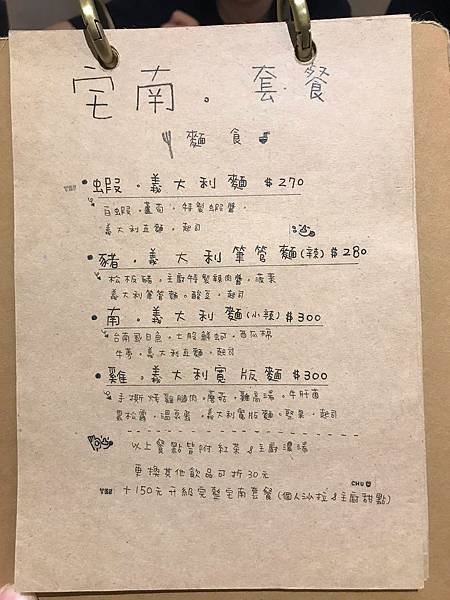 宅南。套餐
麵食
YES! 蝦。義大利麵 $270
白蝦。蘆筍。特製蝦醬。
義大利直麵。起司
豬。義大利筆管麵(辣) $280
松板豬。主廚特製辣肉醬。菠菜
義大利筆管麵。酸豆。起司
南。義大利麵(小辣) $300
台南虱目魚。七股鮮蚵。西瓜綿
牛蒡。義大利直麵。起司
雞。義大利寬版麵 $300
手撕烤雞腿肉。蘑菇。雞高湯。牛肝菌
黑松露。溫泉蛋。義大利寬版麵。堅果。起司
以上餐點皆附紅茶&主廚濃湯
更換其他飲品可折30元
CHU
YES! +150元升級完整宅南套餐(個人沙拉&主廚甜點)